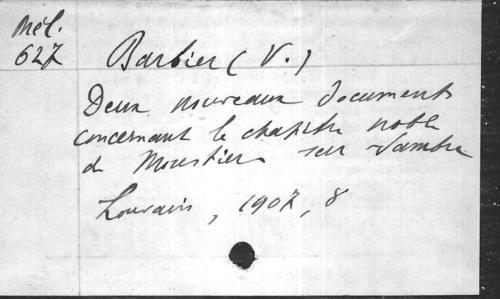 Mél.
627
Barbier (V.)
Deux nouveaux documents
concernant le chapitre noble
de Moustier sur Sambre
Louvain, 1907, 8